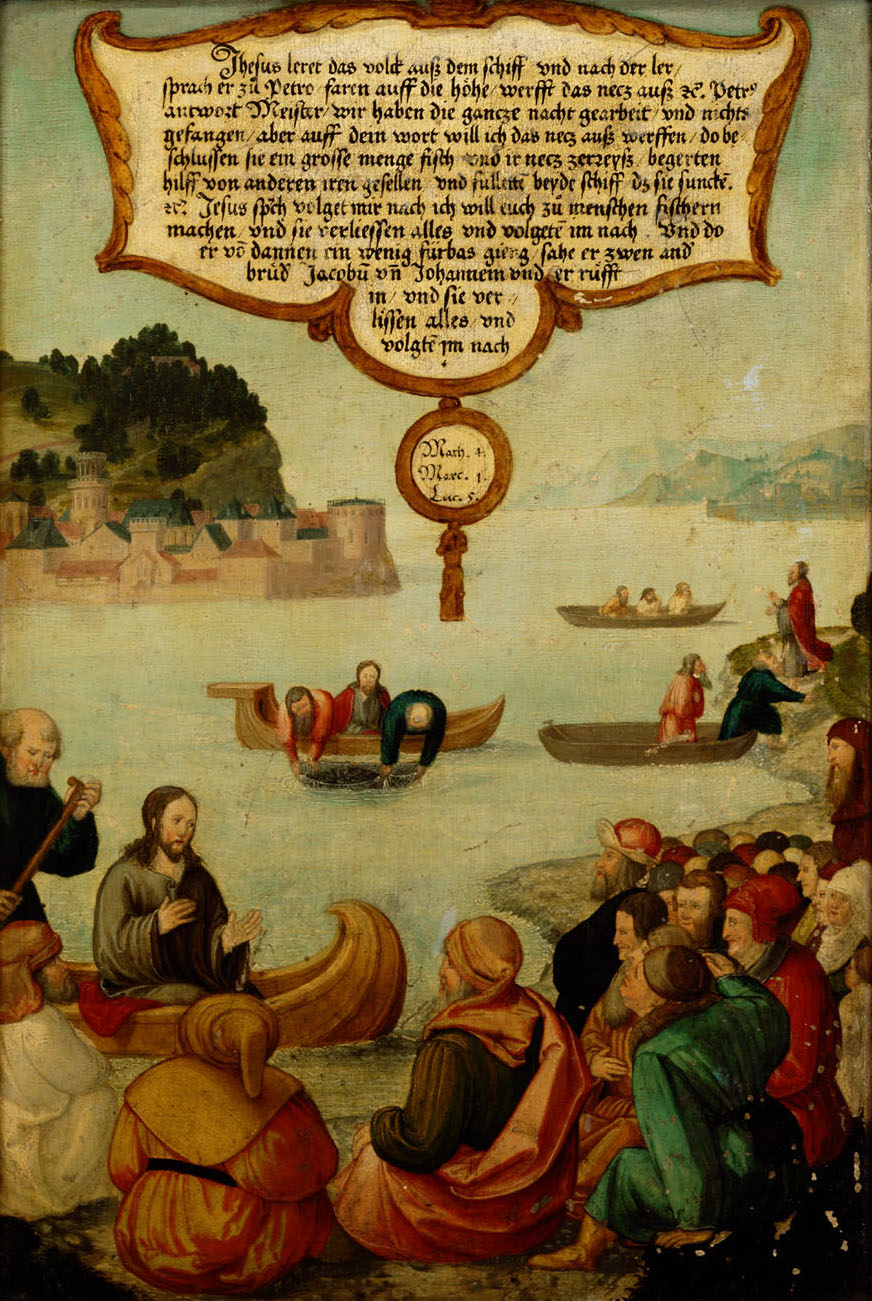 Jhesus leret das volck auß dem schiff vnd nach der ler/
sprach er zů Petro faren auff die höhe/ werfft das necz auß ꝛc̄. Petrꝰ
antwort Meister/ wir haben die gancze nacht gearbeit/ vnd nichts
gefangen/ aber auff dein wort will ich das necz auß werffen/ do be⸗
schlussen sie ein grosse menge fisch vnd ir necz zerreyß/ begerten
hilff von anderen iren gesellen vnd fulletē beyde schiff dz sie sunckē.
ꝛc̄. Jesus spch volget mir nach ich will euch zů menschen fischern
machen/ vnd sie verliessen alles vnd volgetē im nach. Vnd do
er vō dannen ein wenig fürbas gieng/ sahe er zwen and
brůd Jacobū vn̄ Johannem vnd er růfft
in/ vnd sie ver⸗
lissen alles/ vnd
volgtē jm nach
Math. 4.
Marc. 1.
Luc. 5.